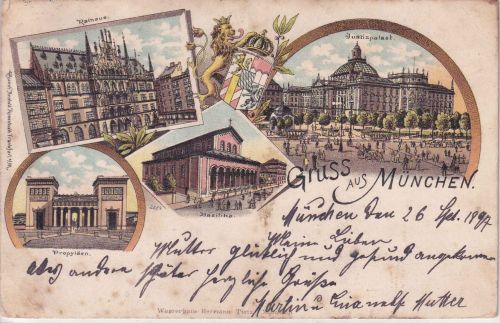 Rathaus.
Justizpalast.
Basilika.
Propyläen.
Gruss aus München.
München den 26 Spt. 1897
Meine Lieben
Mutter glücklich und gesund angekommen
alles andere später herzliche Grüße
Mutter
Warenhaus Hermann Tietz